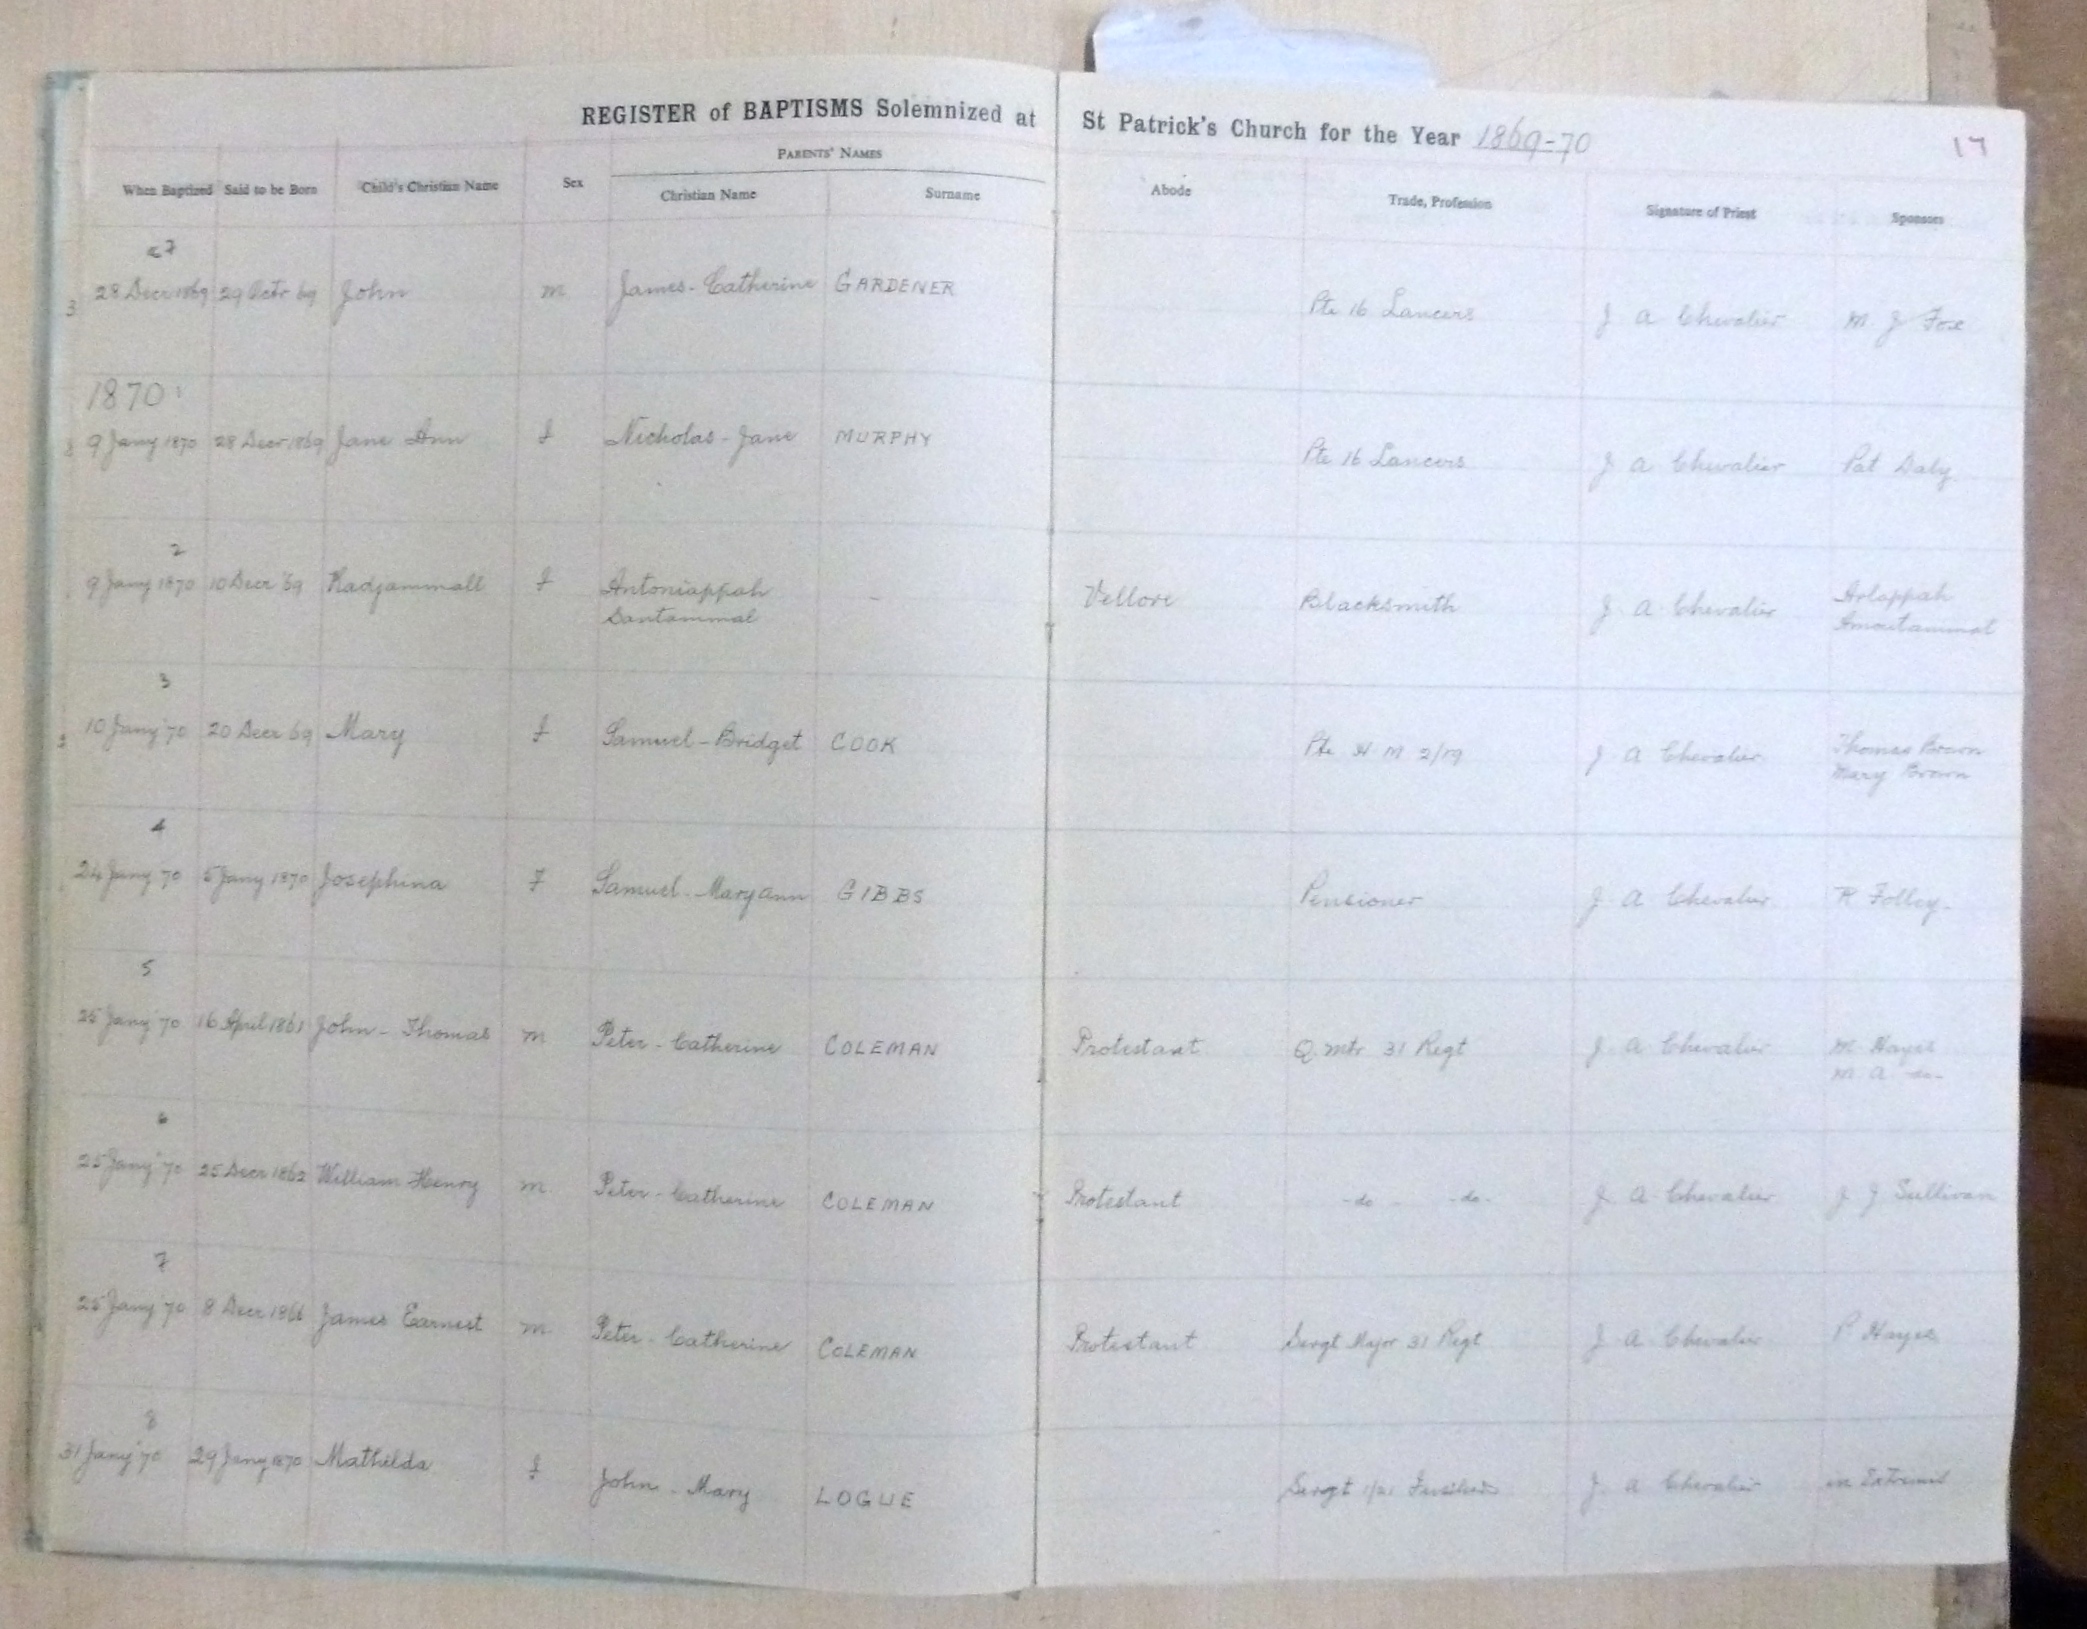 REGISTER of BAPTISMS Solemnized at St Patrick's Church for the Year 1869-70
17
PARENTS' NAMES
When Baptized Said to be Born Child's Christian Name Sex Christian Name Surname Abode Trade, Profession Signature of Priest Sponsors
28 Decr 1869 29 Octr 69 John m James - Catherine GARDENER Pte 16 Lancers J A Chevalier M J Fox
1870
9 Jany 1870 28 Decr 1869 Jane Ann f Nicholas - Jane MURPHY Pte 16 Lancers J A Chevalier Pat Daly
2
9 Jany 1870 10 Decr '69 Radjammall f Antoniappah - Vellore Blacksmith J A Chevalier Arlappah
Santammal Amoutammal
3
10 Jany '70 20 Decr 69 Mary f Samuel - Bridget COOK Pte H M 2/19 J A Chevalier Thomas Brown
Mary Brown
4
24 Jany 70 5 Jany 1870 Josephina F Samuel - Maryann GIBBS Pensioner J A Chevalier R Folley
5
25 Jany '70 16 April 1861 John - Thomas m Peter - Catherine COLEMAN Protestant Q. Mtr 31 Regt J A Chevalier M Hayes
M A -do-
6
25 Jany '70 25 Decr 1862 William Henry m Peter - Catherine COLEMAN Protestant -do- -do- J A Chevalier J J Sullivan
7
25 Jany '70 8 Decr 1866 James Earnest m Peter - Catherine COLEMAN Protestant Sergt Major 31 Regt J A Chevalier P Hayes
8
31 Jany '70 29 Jany 1870 Mathilda f John - Mary LOGUE Sergt 1/21 Fusiliers J A Chevalier in Extremis